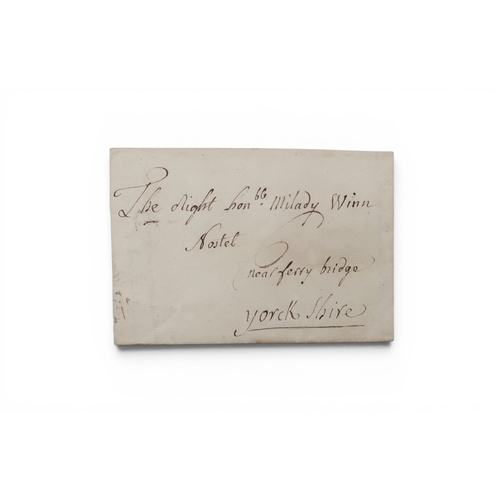 The Right hon^ble. Milady Winn
Nostel
near ferry bridge
yorck shire